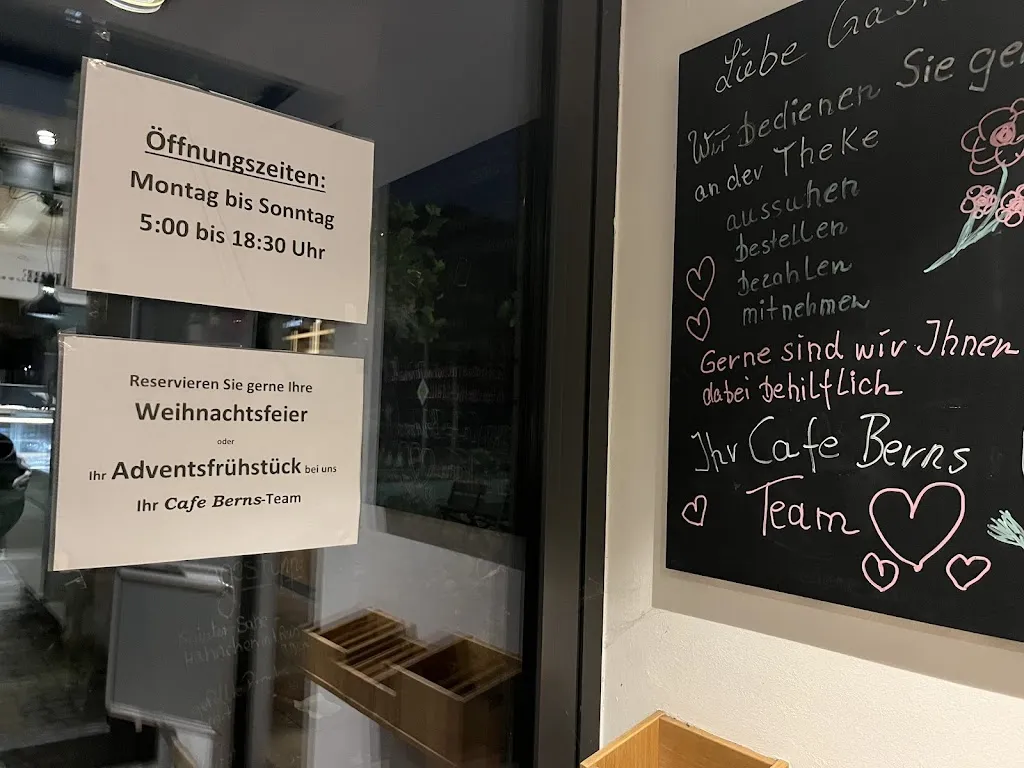 Öffnungszeiten:
Montag bis Sonntag
5:00 bis 18:30 Uhr
Reservieren Sie gerne Ihre
Weihnachtsfeier
oder
Ihr Adventsfrühstück bei uns
Ihr Cafe Berns-Team
Liebe
Wir bedienen Sie
an der Theke
aussuhen
bestellen
bezahlen
mitnehmen
Gerne sind wir Ihnen
dabei behilflich
Ihr Cafe Berns
Team